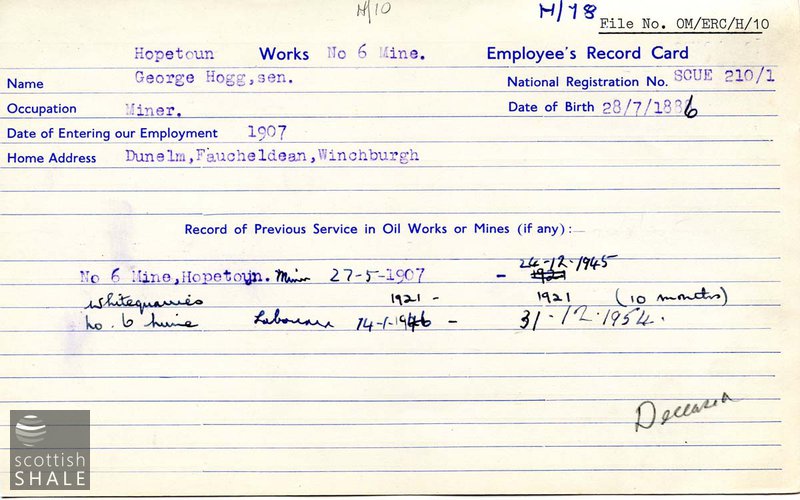 H/10
H/78
File No. OM/ERC/H/10
Hopetoun Works No 6 Mine. Employee's Record Card
Name George Hogg,sen. National Registration No. SCUE 210/1
Occupation Miner. Date of Birth 28/7/1886
Date of Entering our Employment 1907
Home Address Dunelm,Faucheldean,Winchburgh
Record of Previous Service in Oil Works or Mines (if any):—
24-12-1945
No 6 Mine,Hopetoun. Miner 27-5-1907 - 1921
Whitequarries 1921 - 1921 (10 months)
No. 6 mine Labourer 14-1-1946 - 31-12-1954.
Deceased
scottish
SHALE